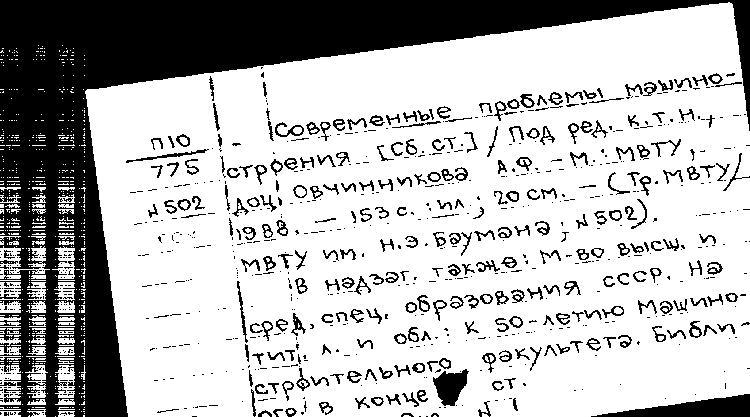 Современные проблемы машино-
П10
775
N502
строения [Сб. ст.] / Под ред. к.т.н.,
доц. Овчинникова А.Ф. – М.: МВТУ,
1988. – 153 с. : ил ; 20 см. – (Тр. МВТУ/
МВТУ им. Н.Э. Баумана ; N502).
В надзаг. также: М-во высш. и
сред. спец. образования СССР. На
тит. л. и обл.: К 50-летию Машино-
строительного факультета. Библи-
огр. в конце ст.